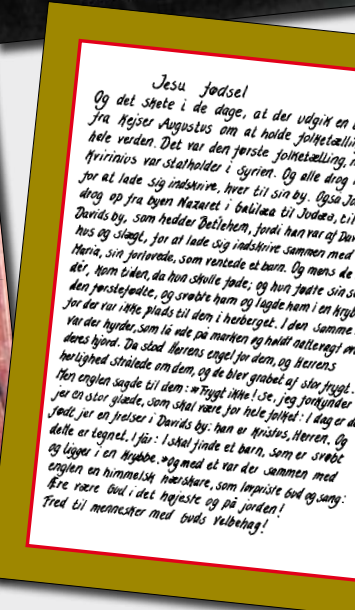 Jesu fødsel
Og det skete i de dage, at der udgik en
fra kejser Augustus om at holde folketælling
hele verden. Det var den første folketælling,
Kvirinius var statholder i Syrien. Og alle drog
for at lade sig indskrive, hver til sin by. Også
drog op fra byen Nazaret i Galilæa til Judæa, til
Davids by, som hedder Betlehem, fordi han var af
hus og slægt, for at lade sig indskrive sammen med
Maria, sin forlovede, som ventede et barn. Og mens de
dér, kom tiden, da hun skulle føde; og hun fødte sin
den førstefødte, og svøbte ham og lagde ham i en
for der var ikke plads til dem i herberget. I den samme
var der hyrder, som lå ude på marken og holdt nattevagt
deres hjord. Da stod Herrens engel for dem, og Herrens
herlighed strålede om dem, og de blev grebet af stor frygt.
Men englen sagde til dem: "Frygt ikke! Se, jeg forkynder
jer en stor glæde, som skal være for hele folket: I dag er
født jer en frelser i Davids by: han er Kristus, Herren. Og
dette er tegnet, I får: I skal finde et barn, som er svøbt
og ligger i en krybbe." Og med ét var der sammen med
englen en himmelsk hærskare, som lovpriste Gud og sang:
Ære være Gud i det højeste og på jorden!
Fred til mennesker med Guds velbehag!